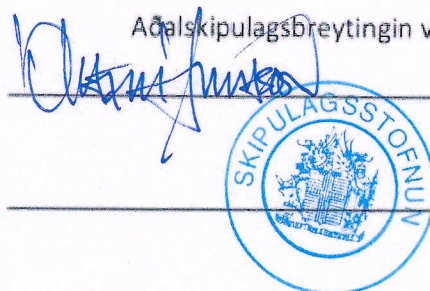 Aðalskipulagsbreytingin v
SKIPULAGSSTOFNUN